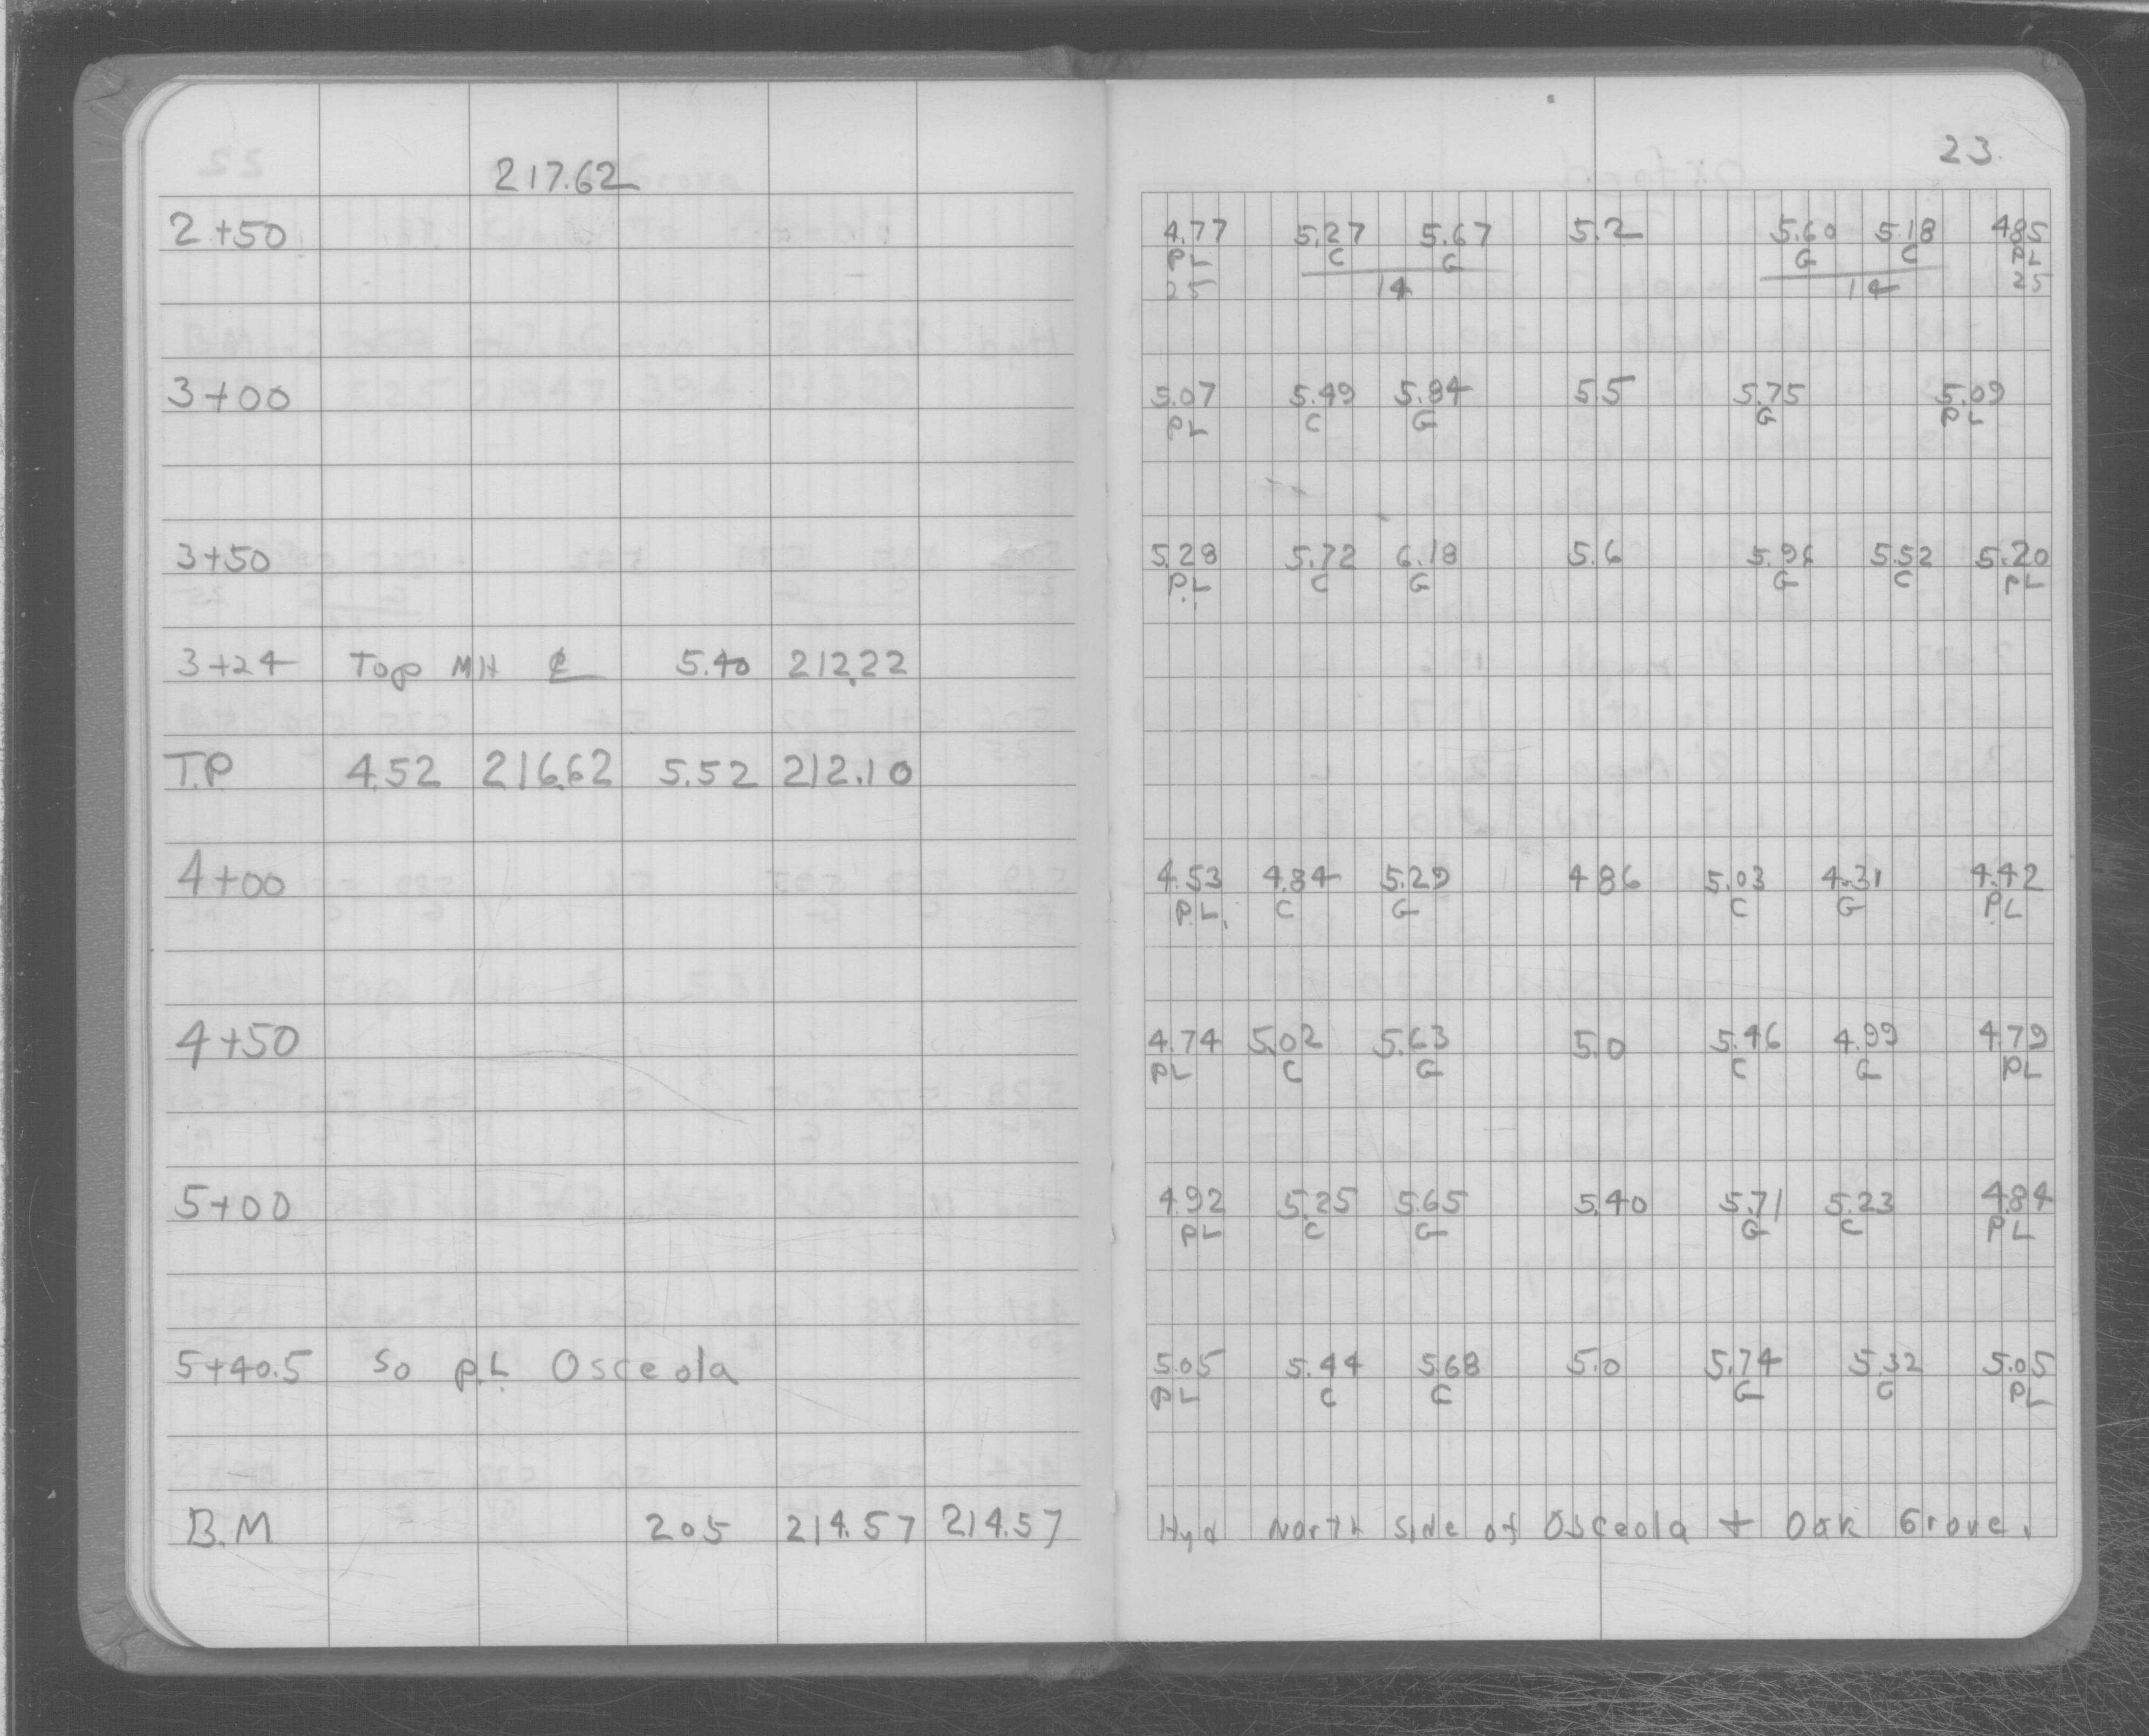 217.62
23.
2+50 4.77 5.27 5.67 5.2 5.60 5.18 4.85
PL C G G C PL
25 14 14 25
3+00 5.07 5.49 5.84 5.5 5.75 5.09
PL C G G PL
3+50 5.28 5.72 6.18 5.6 5.96 5.52 5.20
P.L C G G C PL
3+24 Top MH ℄ 5.40 212.22
T.P. 4.52 216.62 5.52 212.10
4+00 4.53 4.84 5.29 4.86 5.03 4.31 4.42
P.L. C G C G P.L
4+50 4.74 5.02 5.63 5.0 5.46 4.99 4.79
PL C G C G PL
5+00 4.92 5.25 5.65 5.40 5.71 5.23 4.84
PL C G G C PL
5+40.5 So p.L Osceola 5.05 5.44 5.68 5.0 5.74 5.32 5.05
PL C C G C PL
B.M 205 214.57 214.57 Hyd North Side of Osceola + Oak Grove.